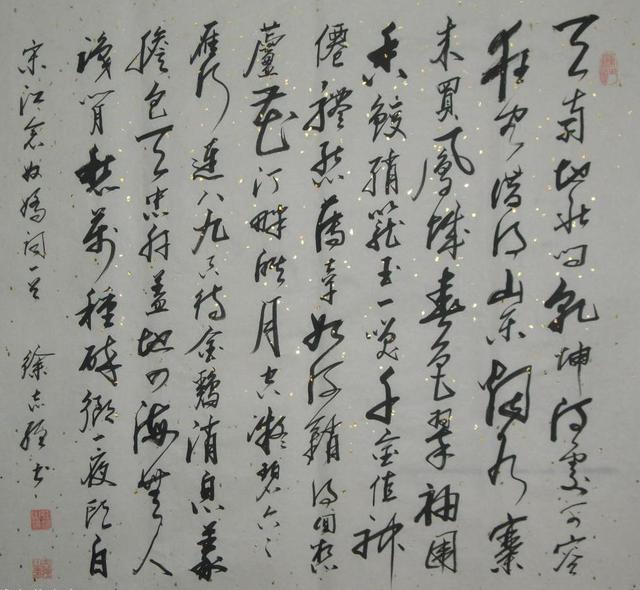 天南地北问乾坤何處可容
狂客借得山东烟水寨
来買鳳城春色翠袖圍
香鮫綃籠玉一笑千金值神
僊體態薄幸如何銷得回想
蘆花汀畔皓月空凝碧六六
雁行連八九只待金鷄消息義
膽包天忠肝蓋地四海無人
識閒愁萬種醉鄉一夜頭白
宋江念奴嬌詞一首 徐志书